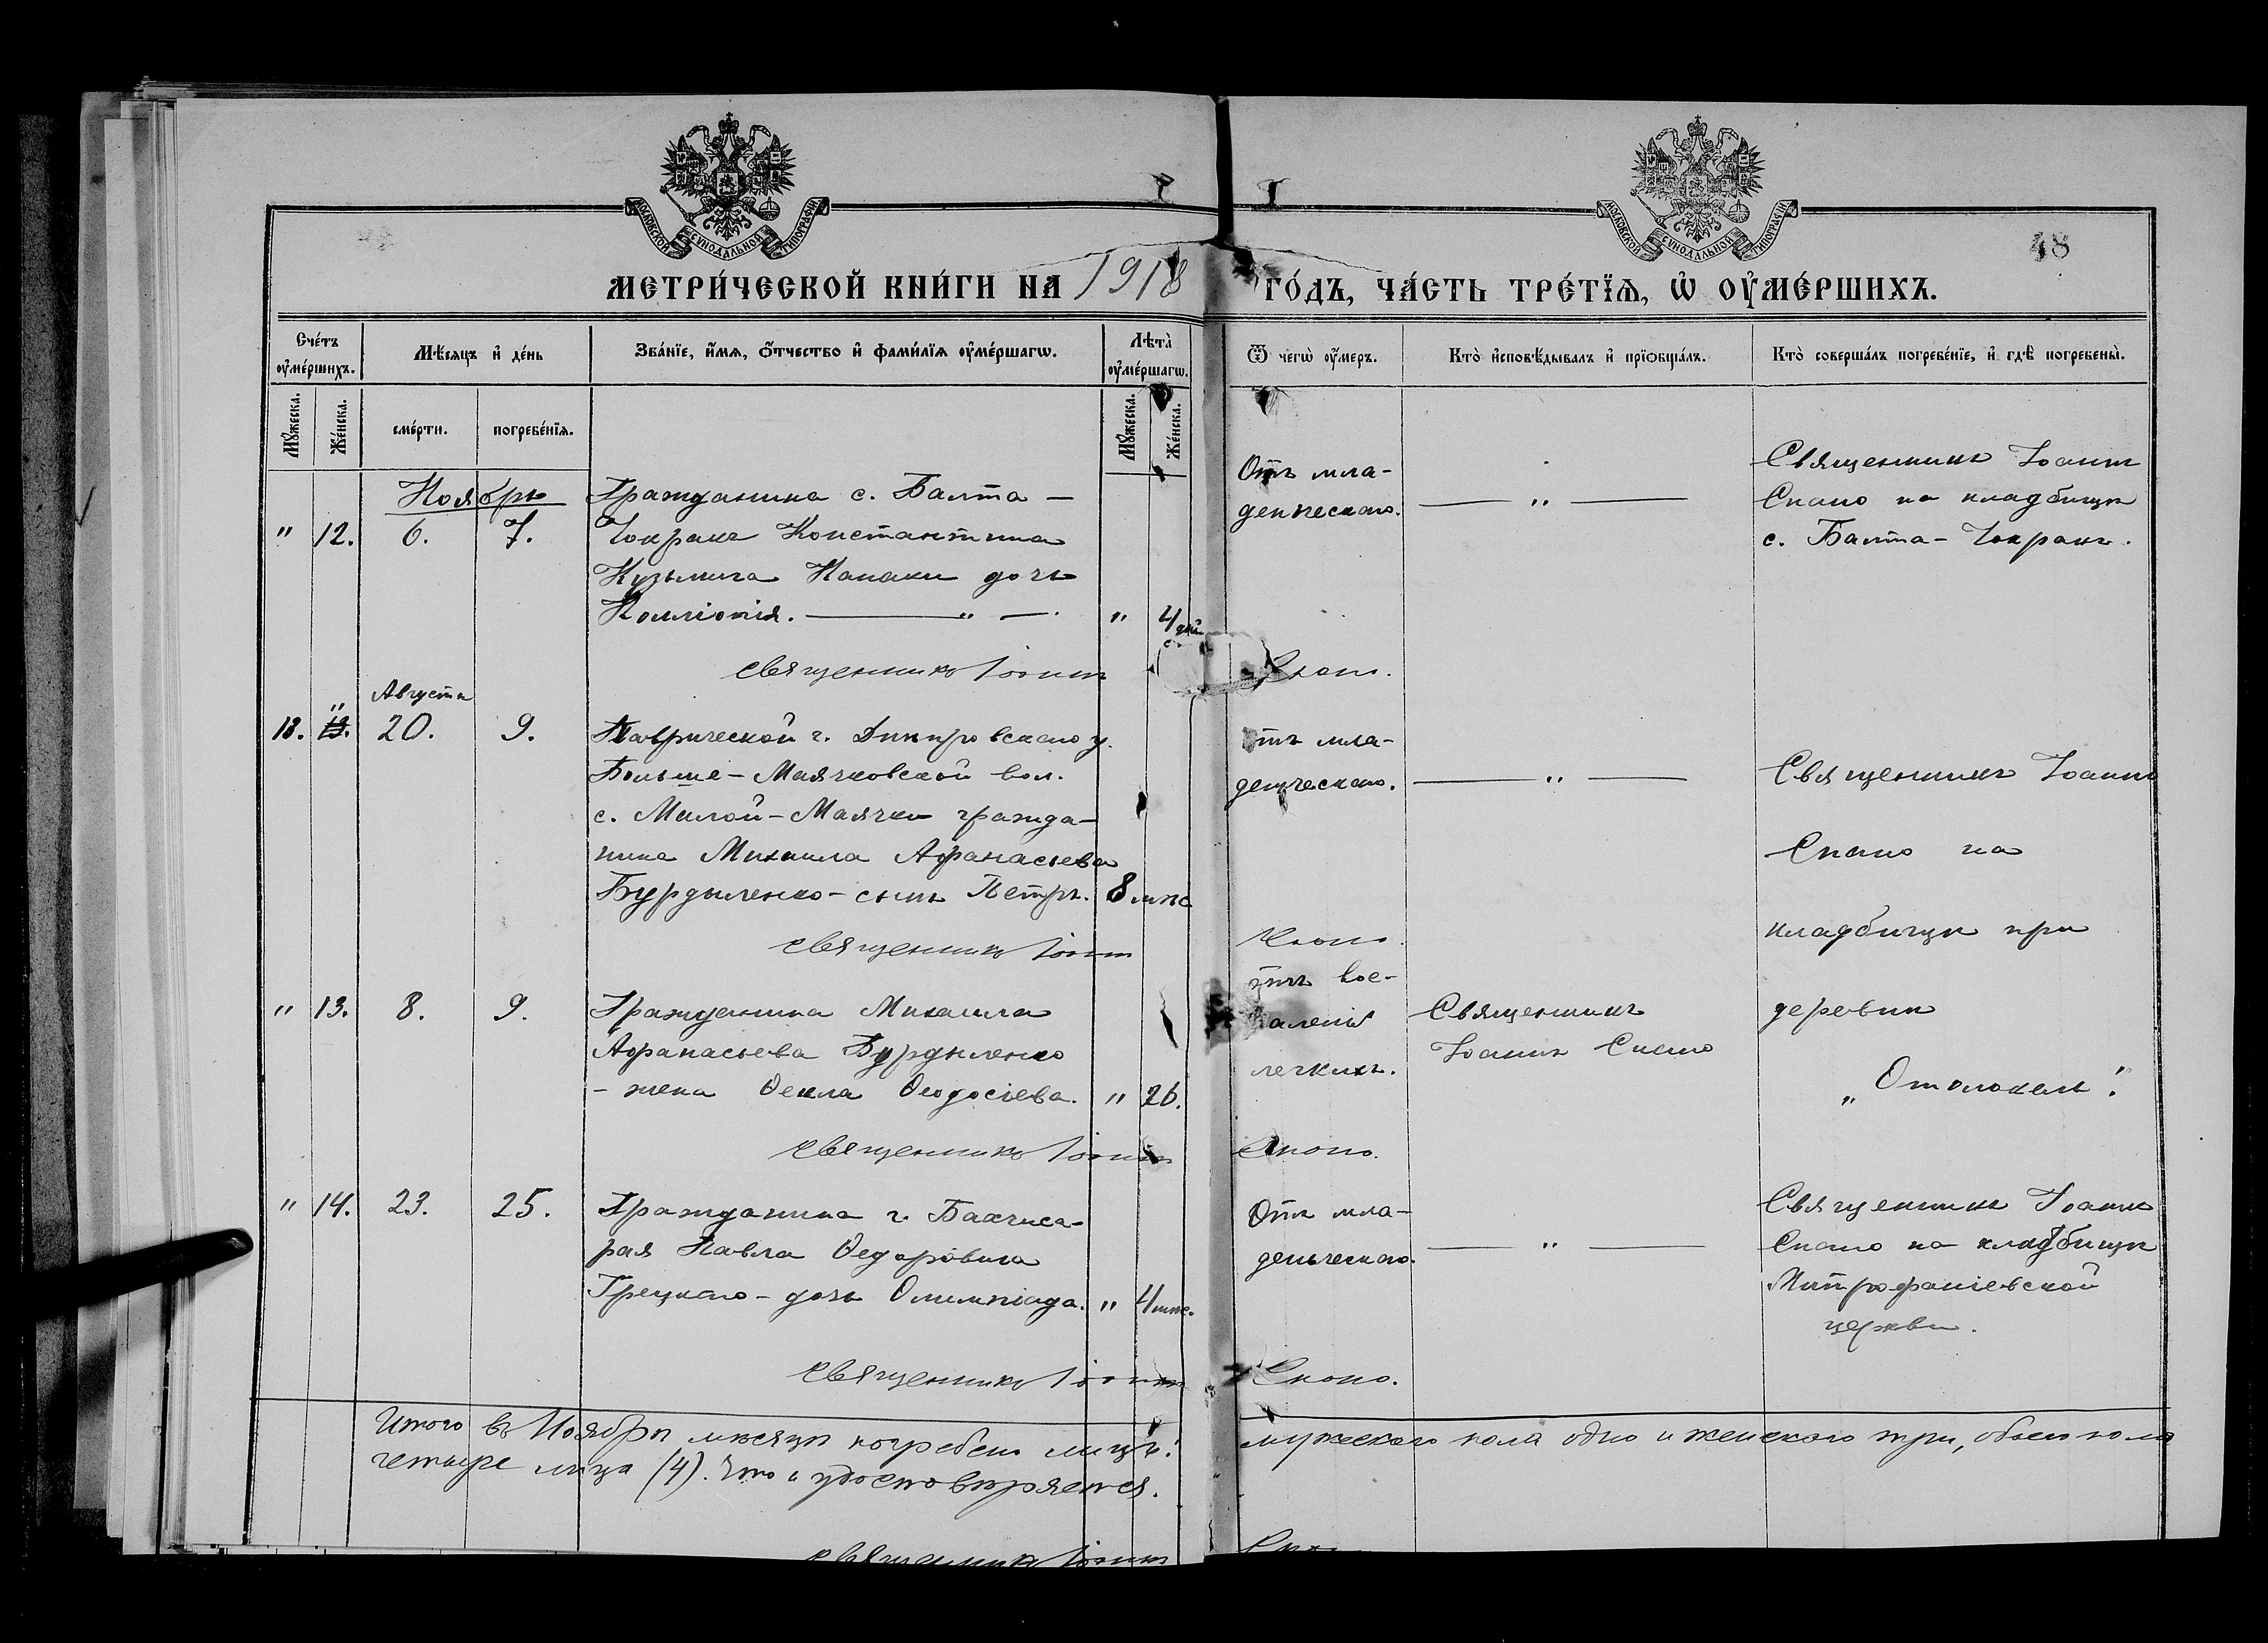 МОСКОВСКОЙ СУНОДАЛЬНОЙ ТИПОГРАФІИ
МОСКОВСКОЙ СУНОДАЛЬНОЙ ТИПОГРАФІИ
48
МЕТРИ́ЧЕСКОЙ КНИ́ГИ НА 1918 ГО́ДЪ, ЧА́СТЬ ТРЕ́ТЇѦ, Ѡ҆ ОУ҆МЕ́РШИХЪ.
Сче́тъ оу҆ме́ршихъ.
Мѣ́сяцъ и҆ де́нь
Зва́нїе, и҆́мѧ, ѻ҆́тчество и҆ фами́лїѧ оу҆ме́ршагѡ.
Лѣ́та̀ оу҆ме́ршагѡ.
Ѿ чегѡ̀ оу҆́меръ.
Кто̀ и҆сповѣ́дывалъ и҆ прїѡбща́лъ.
Кто̀ соверша́лъ погребе́нїе, и҆ гдѣ̀ погребены̀.
Мꙋ́жеска.
Же́нска.
сме́рти.
погребе́нїѧ.
Мꙋ́жеска.
Же́нска.
Ноябрь
" 12. 6. 7.
Гражданина с. Балта -
Чокракъ Константина
Кузьмича Капаки дочь
Каллiопiя. — " —. " 4 дней
Отъ мла-
денческаго. — " —
Священникъ Іоаннъ
Спано на кладбищѣ
с. Балта - Чокракъ.
священникъ Іоаннъ Спано.
Августа
12. " 20. 9.
Таврической г. Днѣпровскаго у.
Больше - Маячковской вол.
с. Малой - Маячки гражда-
нина Михаила Афанасьева
Бурдыленко - сынъ Петръ. 8 мѣс
Отъ мла-
денческаго. — " —
Священникъ Іоаннъ
Спано на
кладбищѣ при
деревнѣ
священникъ Іоаннъ Спано.
" 13. 8. 9.
Гражданина Михаила
Афанасьева Бурдыленко
- жена Ѳекла Ѳеодосiева. " 26.
Отъ вос-
паленiя
легкихъ.
Священникъ
Іоаннъ Спано
священникъ Іоаннъ Спано.
" 14. 23. 25.
Гражданина г. Бахчиса-
рая Павла Ѳедоровича
Грецкаго - дочь Олимпiада. " 4 мѣс.
Отъ мла-
денческаго. — " —
Священникъ Іоаннъ
Спано на кладбищѣ
Митрофанiевской
церкви.
священникъ Іоаннъ Спано.
Итого въ Ноябрѣ мѣсяцѣ погребено лицъ: мужескаго пола одно и женскаго три, обоего пола
четыре лица (4). Что и удостовѣряется.
священникъ Іоаннъ Спано